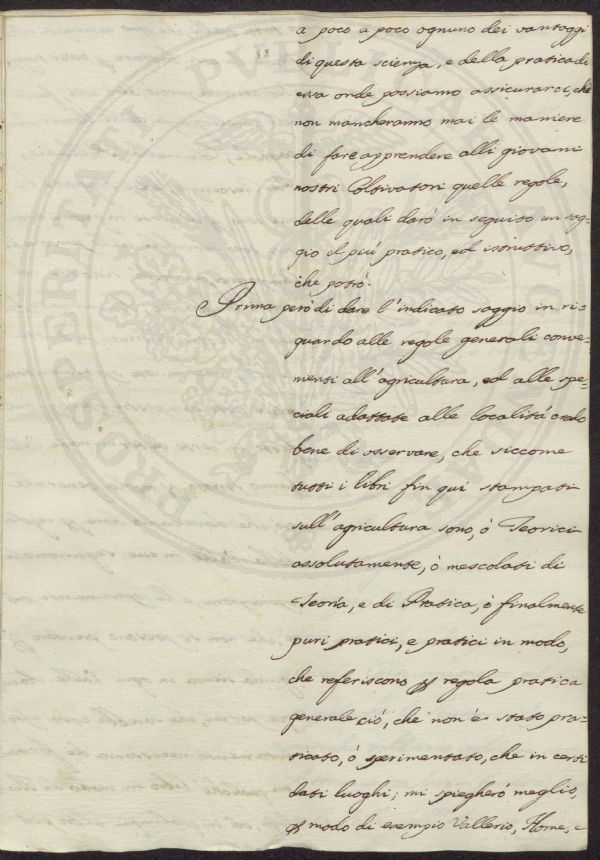 18
a poco a poco ognuno dei vantaggi
di questa scienza, e della pratica di
essa onde possiamo assicurarci, che
non mancheranno mai le maniere
di fare apprendere alli giovani
nostri Coltivatori quelle regole,
delle quali darò in seguito un sag=
gio il più pratico, ed istruttivo,
che potrò.
Prima però di dare l'indicato saggio in ri=
guardo alle regole generali conve=
nienti all'agricultura, ed alle spe=
ciali adattate alle località credo
bene di osservare, che siccome
tutti i libri fin qui stampati
sull'agricultura sono, ò Teorici
assolutamente, ò mescolati di
Teoria, e di Pratica, ò finalmente
puri pratici, e pratici in modo,
che referiscono p regola pratica
generale ciò, che non è stato pra=
ticato, ò sperimentato, che in certi
dati luoghi; mi spiegherò meglio,
p modo di esempio Vallerio, Home, e
PROSPERITATI PVBLICAE AVGENDAE